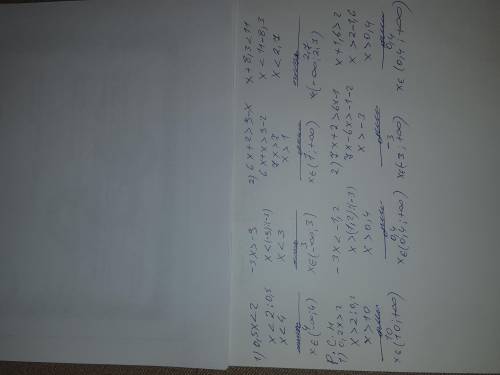 1) 0,5x<2 -3x>-9 2) 6x+2>9-x x+8,3<11
x<2:0,5 x<(-9)/(-3) 6x+x>9-2 x<11-8,3
x<4 x<3 7x>7 x<2,7
x>1
4 3 1 2,7
x∈(-∞;4) x∈(-∞;3) x∈(1;+∞) x(-∞;2,3)
Р. С. М
1) 0,2x>2 -3x<-1,2 2) 7x+2>6x-1 x+1,6>2
x>2:0,2 x>(1,2)/(-3) 7x-6x>-1-2 x>2-1,6
x>10 x>0,4 x>-3 x>0,4
10 0,4 -3 0,4
x∈(10;+∞) x∈(0,4;+∞) x∈(-3;+∞) x∈(0,4;+∞)